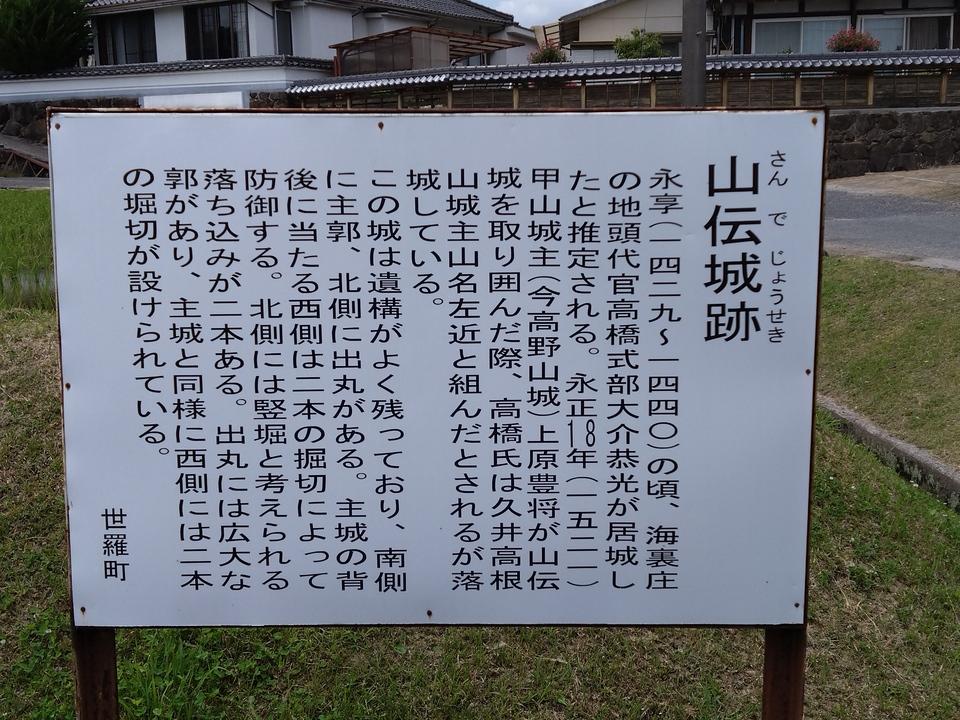 山伝城跡
さんでじょうせき
永享(一四二九～一四四〇)の頃、海裏庄
の地頭代官高橋式部大介恭光が居城し
たと推定される。永正18年(一五二一)
甲山城主(今高野山城)上原豊将が山伝
城を取り囲んだ際、高橋氏は久井高根
山城主山名左近と組んだとされるが落
城している。
この城は遺構がよく残っており、南側
に主郭、北側に出丸がある。主城の背
後に当たる西側は二本の掘切によって
防御する。北側には竪堀と考えられる
落ち込みが二本ある。出丸には広大な
郭があり、主城と同様に西側には二本
の堀切が設けられている。
世羅町